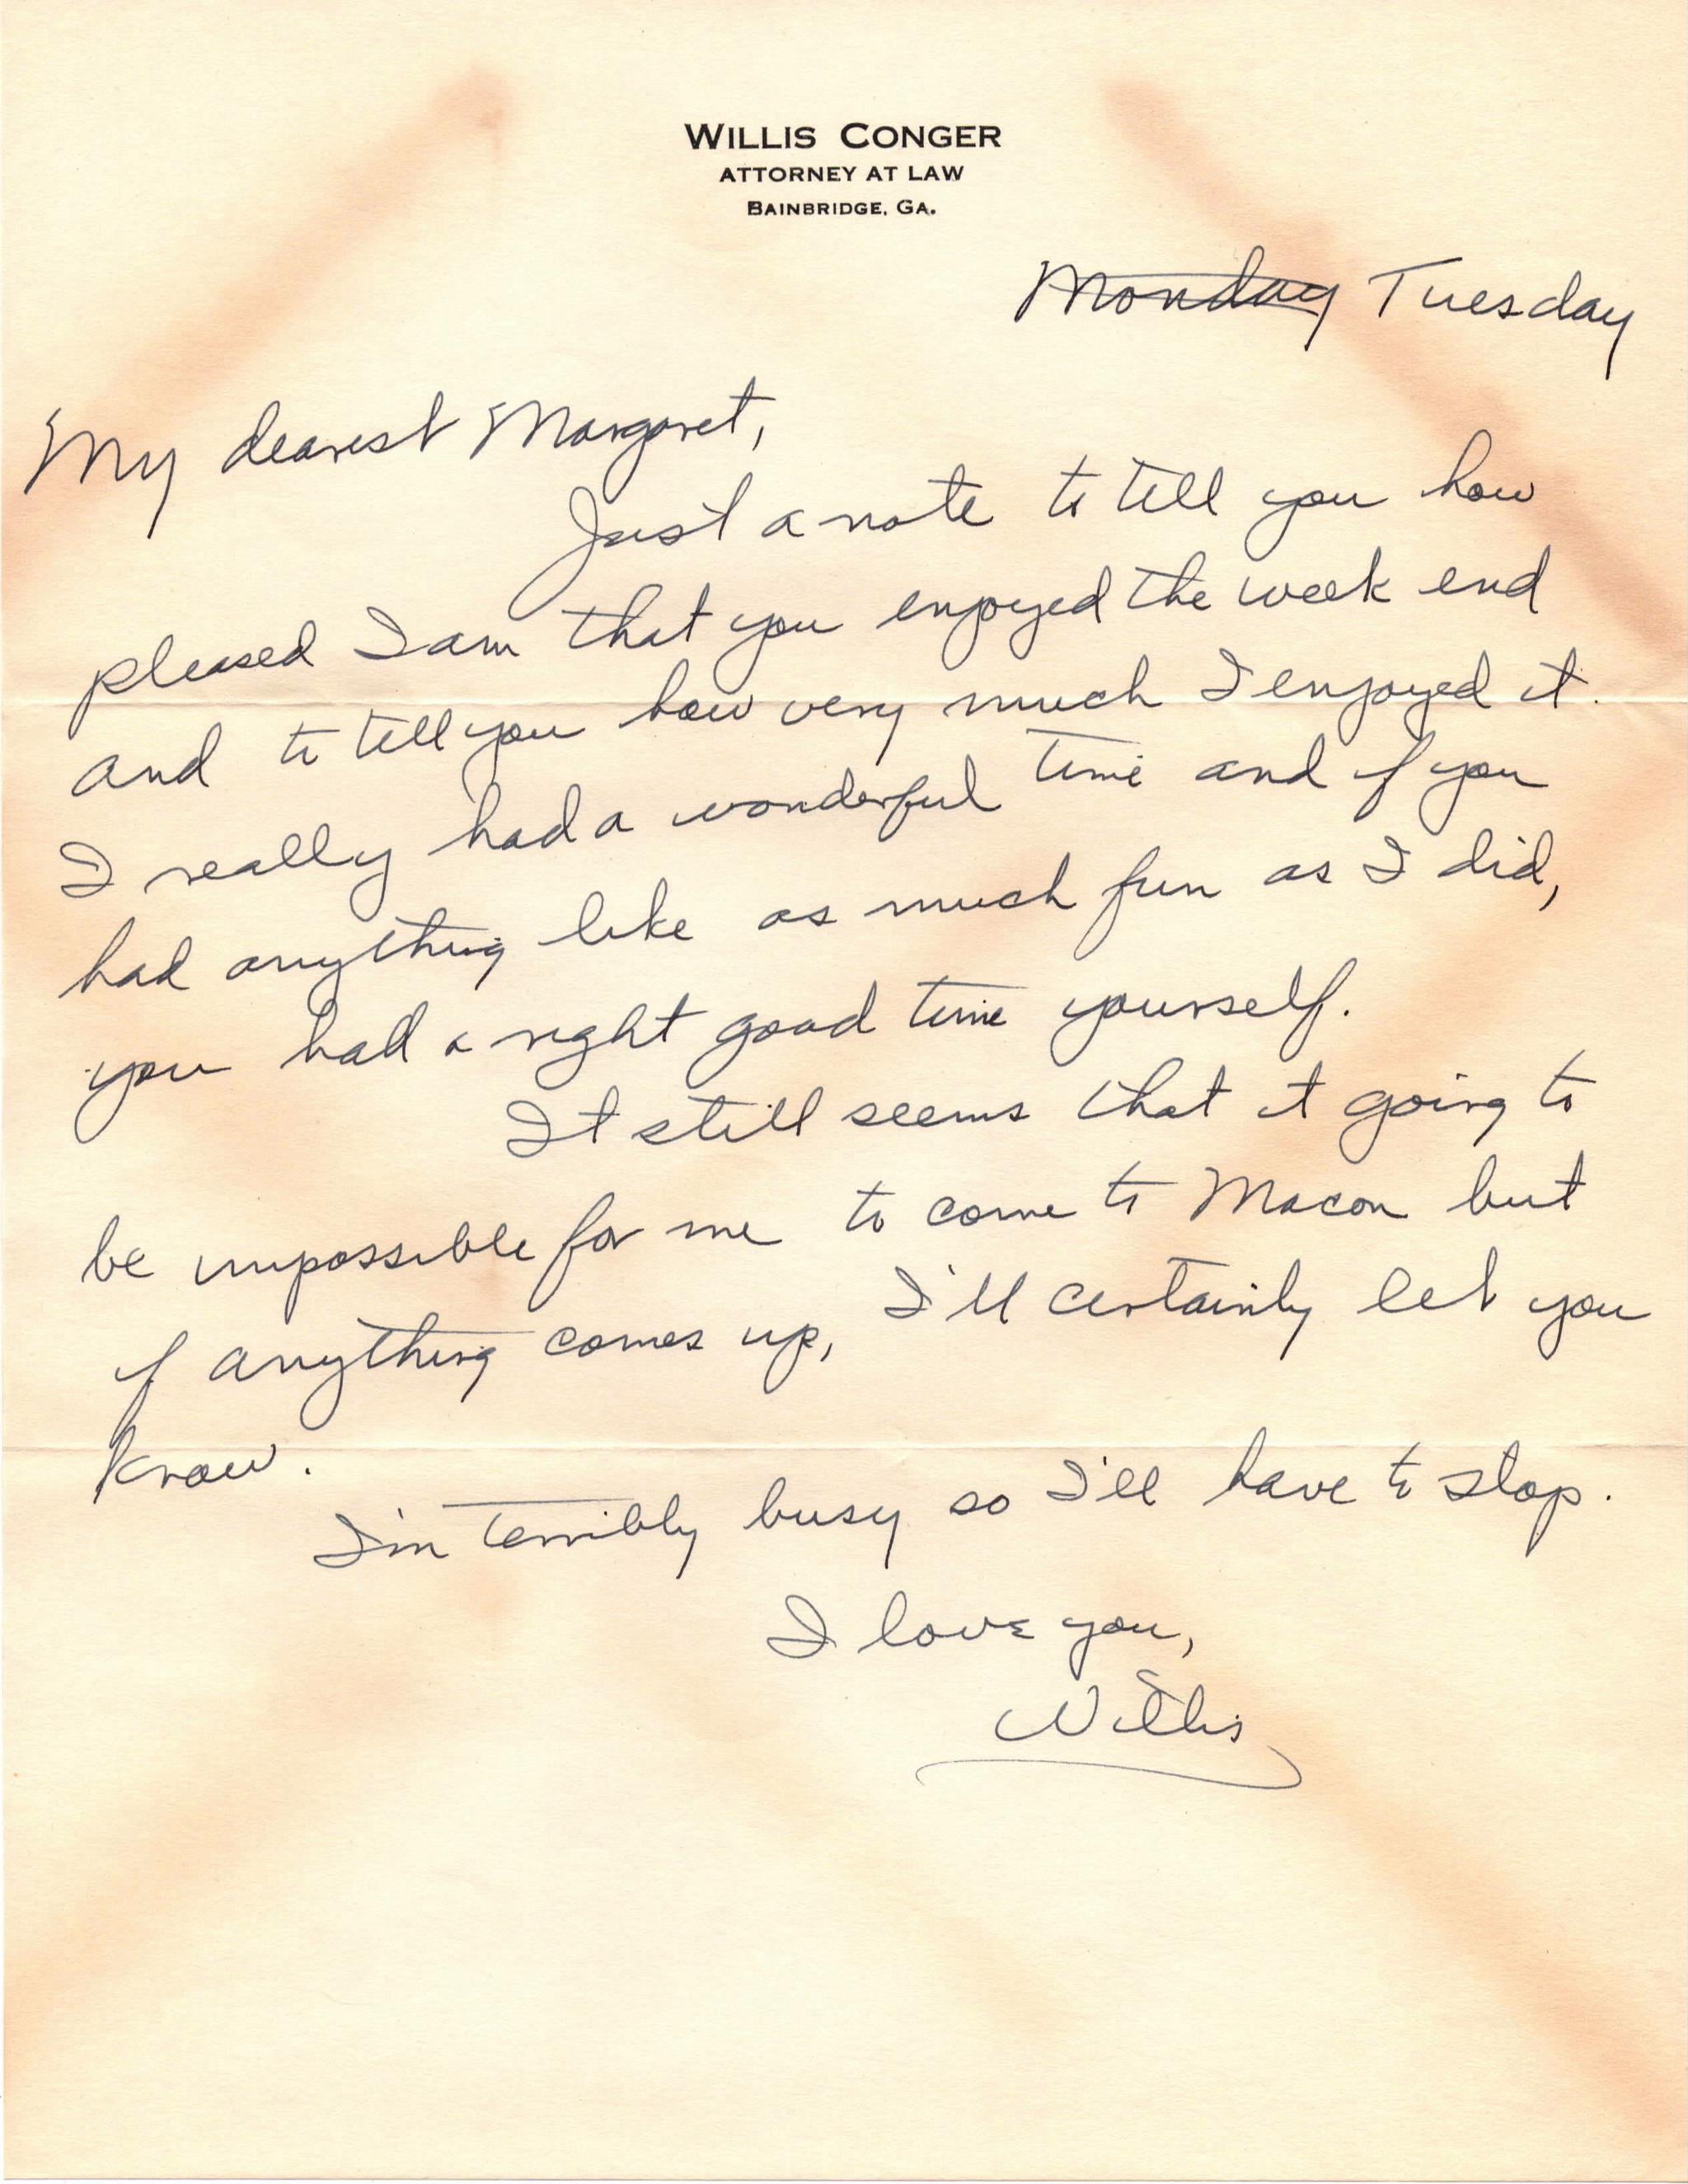 WILLIS CONGER
ATTORNEY AT LAW
BAINBRIDGE, GA.
Monday Tuesday
My dearest Margaret,
Just a note to tell you how
pleased I am that you enjoyed the week end
and to tell you how very much I enjoyed it.
I really had a wonderful time and if you
had anything like as much fun as I did,
you had a right good time yourself.
It still seems that it going to
be impossible for me to come to Macon but
if anything comes up, I'll certainly let you
know.
I'm terribly busy so I'll have to stop.
I love you,
Willis